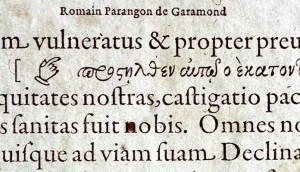 Romain Parangon de Garamond
m vulneratus & propter preu
προςηλθεν αυτῳ ο εκατον
quitates nostras, castigatio pac
s sanitas fuit nobis. Omnes no
uisque ad viam suam Declina